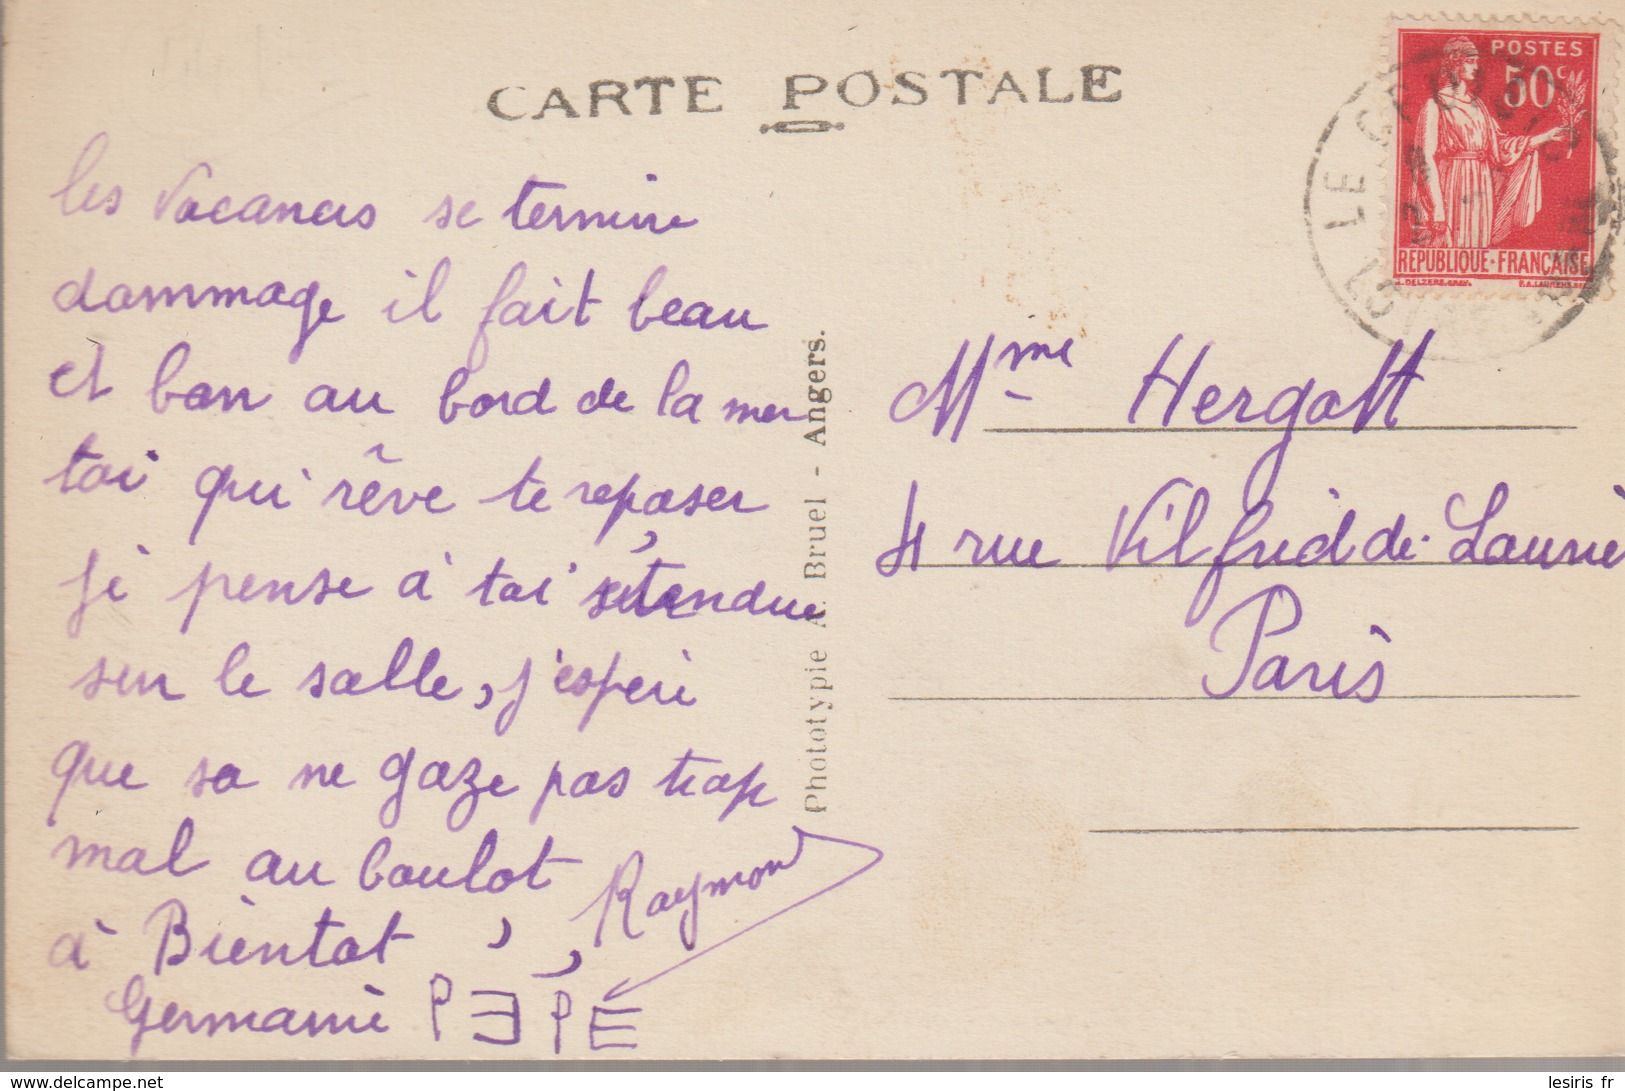 CARTE POSTALE
POSTES
50c
REPUBLIQUE-FRANÇAISE
LE CROISIC
les Vacances se termine
dommage il fait beau
et bon au bord de la mer
toi qui rêve te reposer
je pense à toi s'étendue
sur le salle, j'espère
que sa ne gaze pas trop
mal au boulot
à Bientot,
Raymond
Germaine PEPÉ
Phototypie A. Bruel - Angers.
Mme Hergott
4 rue Vilfrid de Laurie
Paris
delcampe.net
lesiris fr